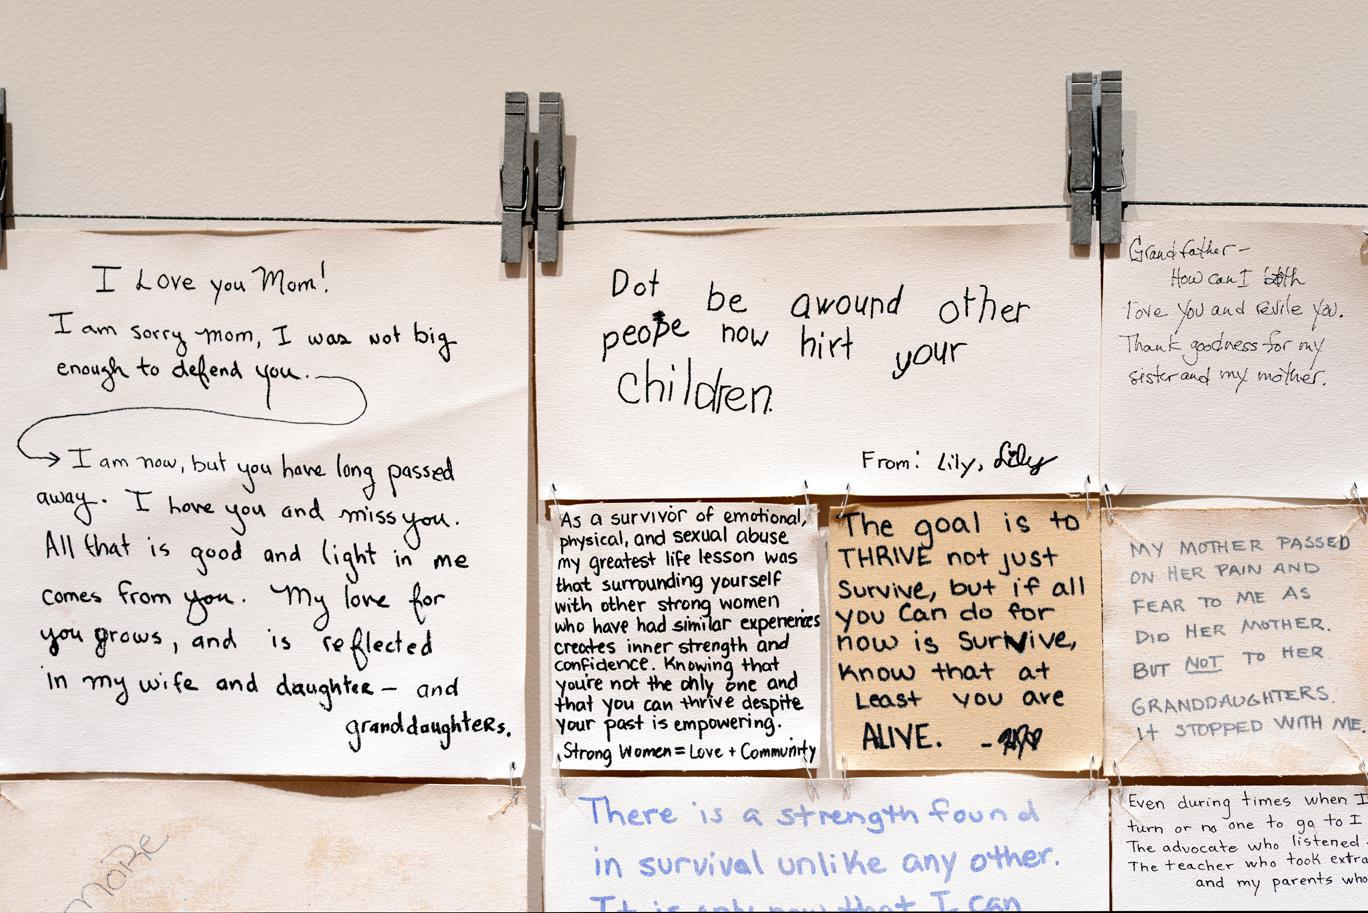 I Love you Mom!
I am sorry mom, I was not big
enough to defend you.
I am now, but you have long passed
away. I love you and miss you.
All that is good and light in me
comes from you. My love for
you grows, and is reflected
in my wife and daughter — and
granddaughters.
Dot be awound other
people now hirt your
children.
From: Lily, Lily
Grandfather —
How can I both
love you and revile you.
Thank goodness for my
sister and my mother.
As a survivor of emotional,
physical, and sexual abuse
my greatest life lesson was
that surrounding yourself
with other strong women
who have had similar experiences
creates inner strength and
confidence. Knowing that
you're not the only one and
that you can thrive despite
your past is empowering.
Strong Women = Love + Community
The goal is to
THRIVE not just
Survive, but if all
you Can do for
now is Survive,
Know that at
Least you are
ALIVE.
MY MOTHER PASSED
ON HER PAIN AND
FEAR TO ME AS
DID HER MOTHER.
BUT NOT TO HER
GRANDDAUGHTERS.
It STOPPED WITH ME.
MORE
There is a strength found
in survival unlike any other.
It is only now that I can
Even during times when I
turn or no one to go to I
The advocate who listened
The teacher who took extra
and my parents who